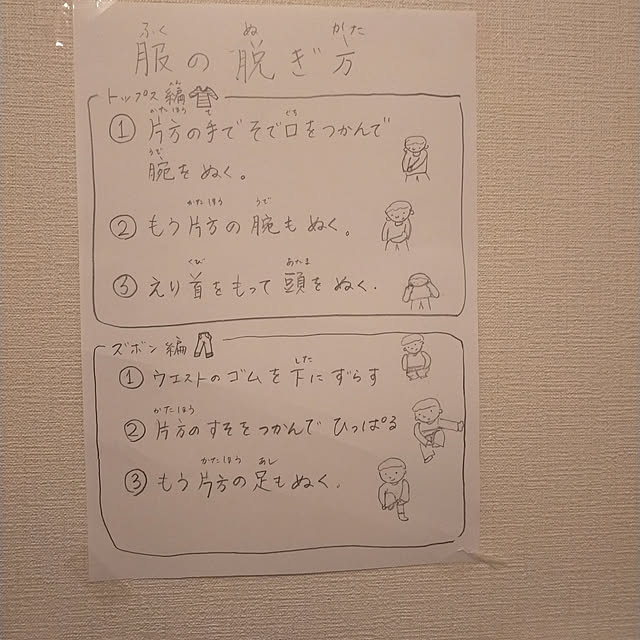 服の脱ぎ方
ふく ぬ かた
トップス編
へん
① 片方の手でそで口をつかんで
かたほう て ぐち
腕をぬく。
うで
② もう片方の腕もぬく。
かたほう うで
③ えり首をもって頭をぬく.
くび あたま
ズボン編
① ウエストのゴムを下にずらす
した
② 片方のすそをつかんでひっぱる
かたほう
③ もう片方の足もぬく.
かたほう あし